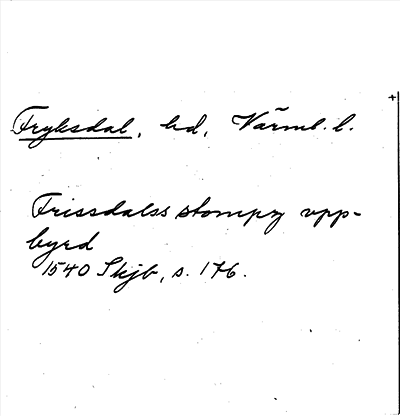 Fryksdal, hd, Värml. l.
Frissdalss stompn upp-
byrd
1540 Skjb, s. 176.